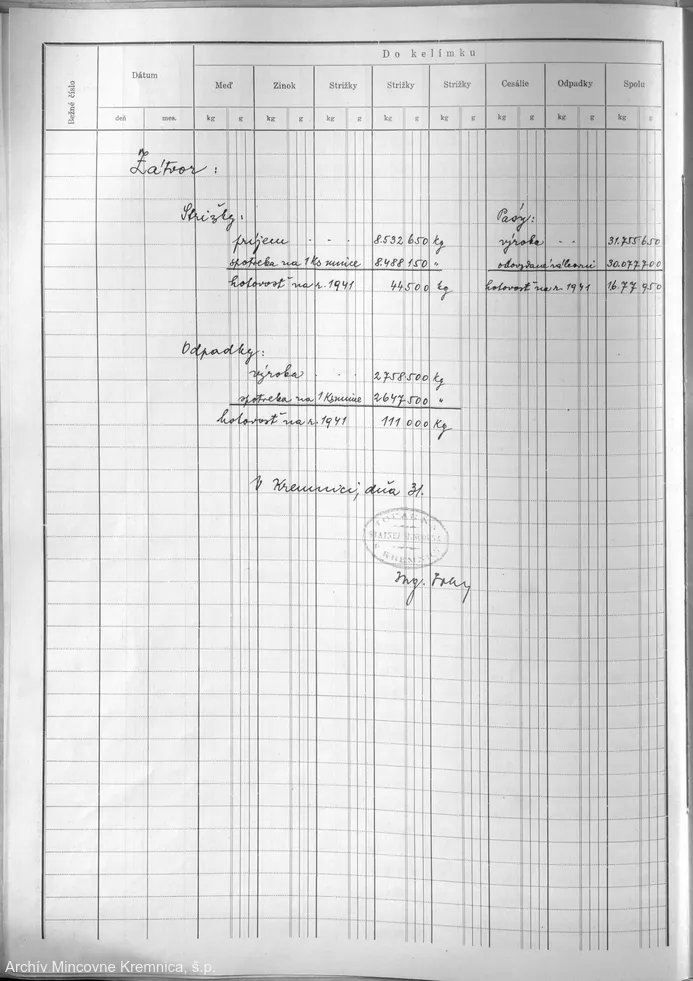 Do kelímku
Bežné číslo
Dátum
Meď
Zinok
Strižky
Strižky
Strižky
Cesálie
Odpadky
Spolu
deň mes. kg g kg g kg g kg g kg g kg g kg g kg g
Zátvor:
Strižky:
príjem . . . 8.532 650 kg
spotreba na 1 Ks mince 8.488 150 "
hotovosť na r. 1941 44 500 kg
Pásy:
výroba . . 31.755 650
odovzdaná 30.077 700
hotovosť na r. 1941 16.77 950
Odpadky:
výroba . . . 2758 500 kg
spotreba na 1 Ks mince 2647 500 "
hotovosť na r. 1941 111 000 Kg
V Kremnici, dňa 31.
KREMNICA
Ing.
Archív Mincovne Kremnica, š.p.